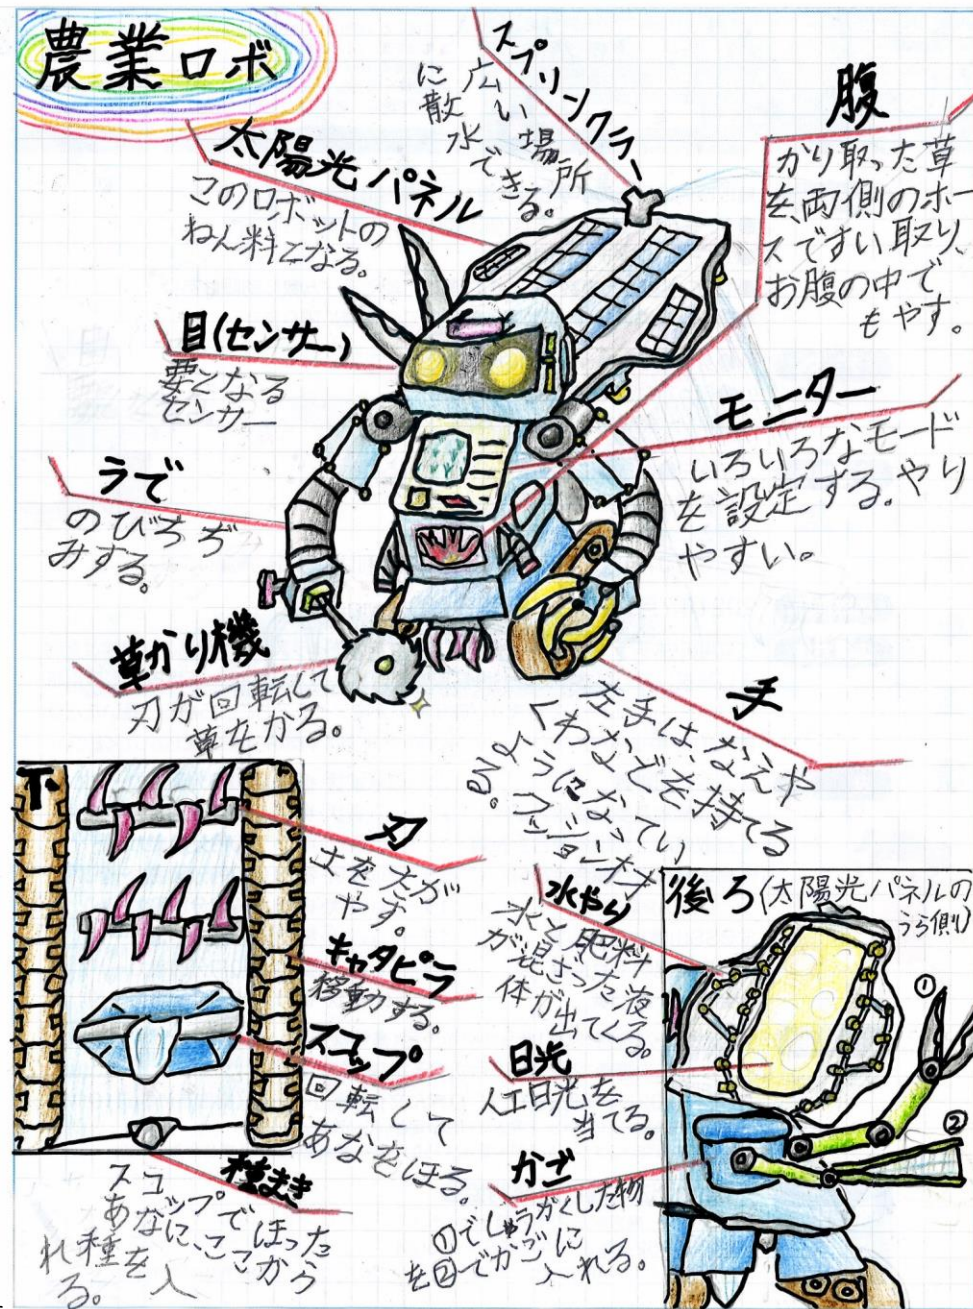 農業ロボ
スプリンクラー
広い場所
に散水できる。
太陽光パネル
このロボットの
ねん料となる。
腹
かり取った草
を、両側のホー
スですい取り、
お腹の中で
もやす。
目(センサー)
要となる
センサー
モニター
いろいろなモード
を設定する。やり
やすい。
うで
のびちぢ
みする。
草かり機
刃が回転して
草をかる。
手
左手は、なえや
くわなどを持てる
ようになってい
る。
下
刃
土をたが
やす。
キャタピラ
移動する。
スコップ
回転して
あなをほる。
種まき
スコップでほった
あなに、ここから
種を入
れる。
水やり
水と肥料
が混ざった液
体が出てくる。
日光
人工日光を
当てる。
かご
①でしゅうかくした物
を②でかごに
入れる。
後ろ(太陽光パネルの
うら側)
①
②